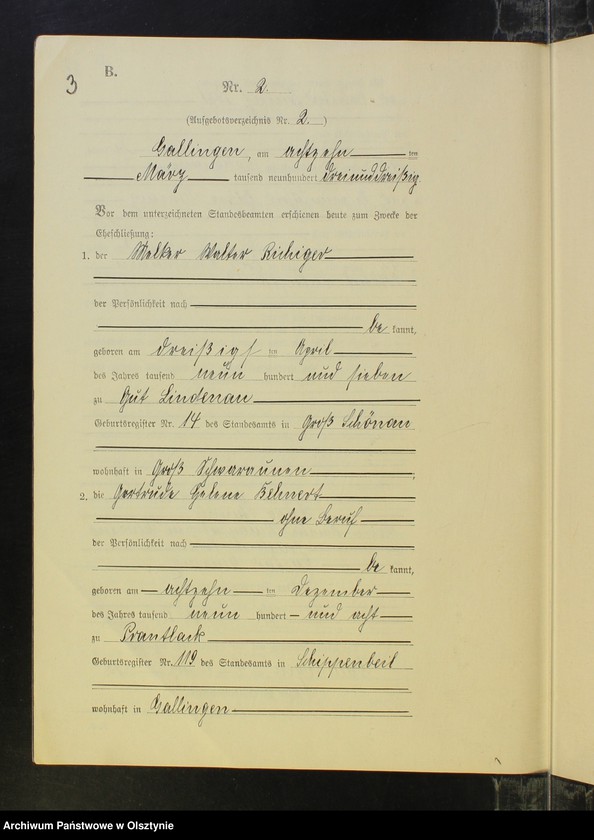 3
B.
Nr. 2.
(Aufgebotsverzeichnis Nr. 2.)
Gallingen, am achtzehn ten
März tausend neunhundert dreiunddreißig
Vor dem unterzeichneten Standesbeamten erschienen heute zum Zwecke der
Eheschließung:
1. der Melker Walter
der Persönlichkeit nach
be kannt,
geboren am dreißigs ten April
des Jahres tausend neun hundert und sieben
zu Gut Lindenau
Geburtsregister Nr. 14 des Standesamts in Groß Schönau
wohnhaft in Groß Schwaraunen,
2. die Gertrude Helene
ohne Beruf
der Persönlichkeit nach
be kannt,
geboren am achtzehn ten Dezember
des Jahres tausend neun hundert und acht
zu Prantlack
Geburtsregister Nr. 119 des Standesamts in Schippenbeil
wohnhaft in Gallingen
Archiwum Państwowe w Olsztynie